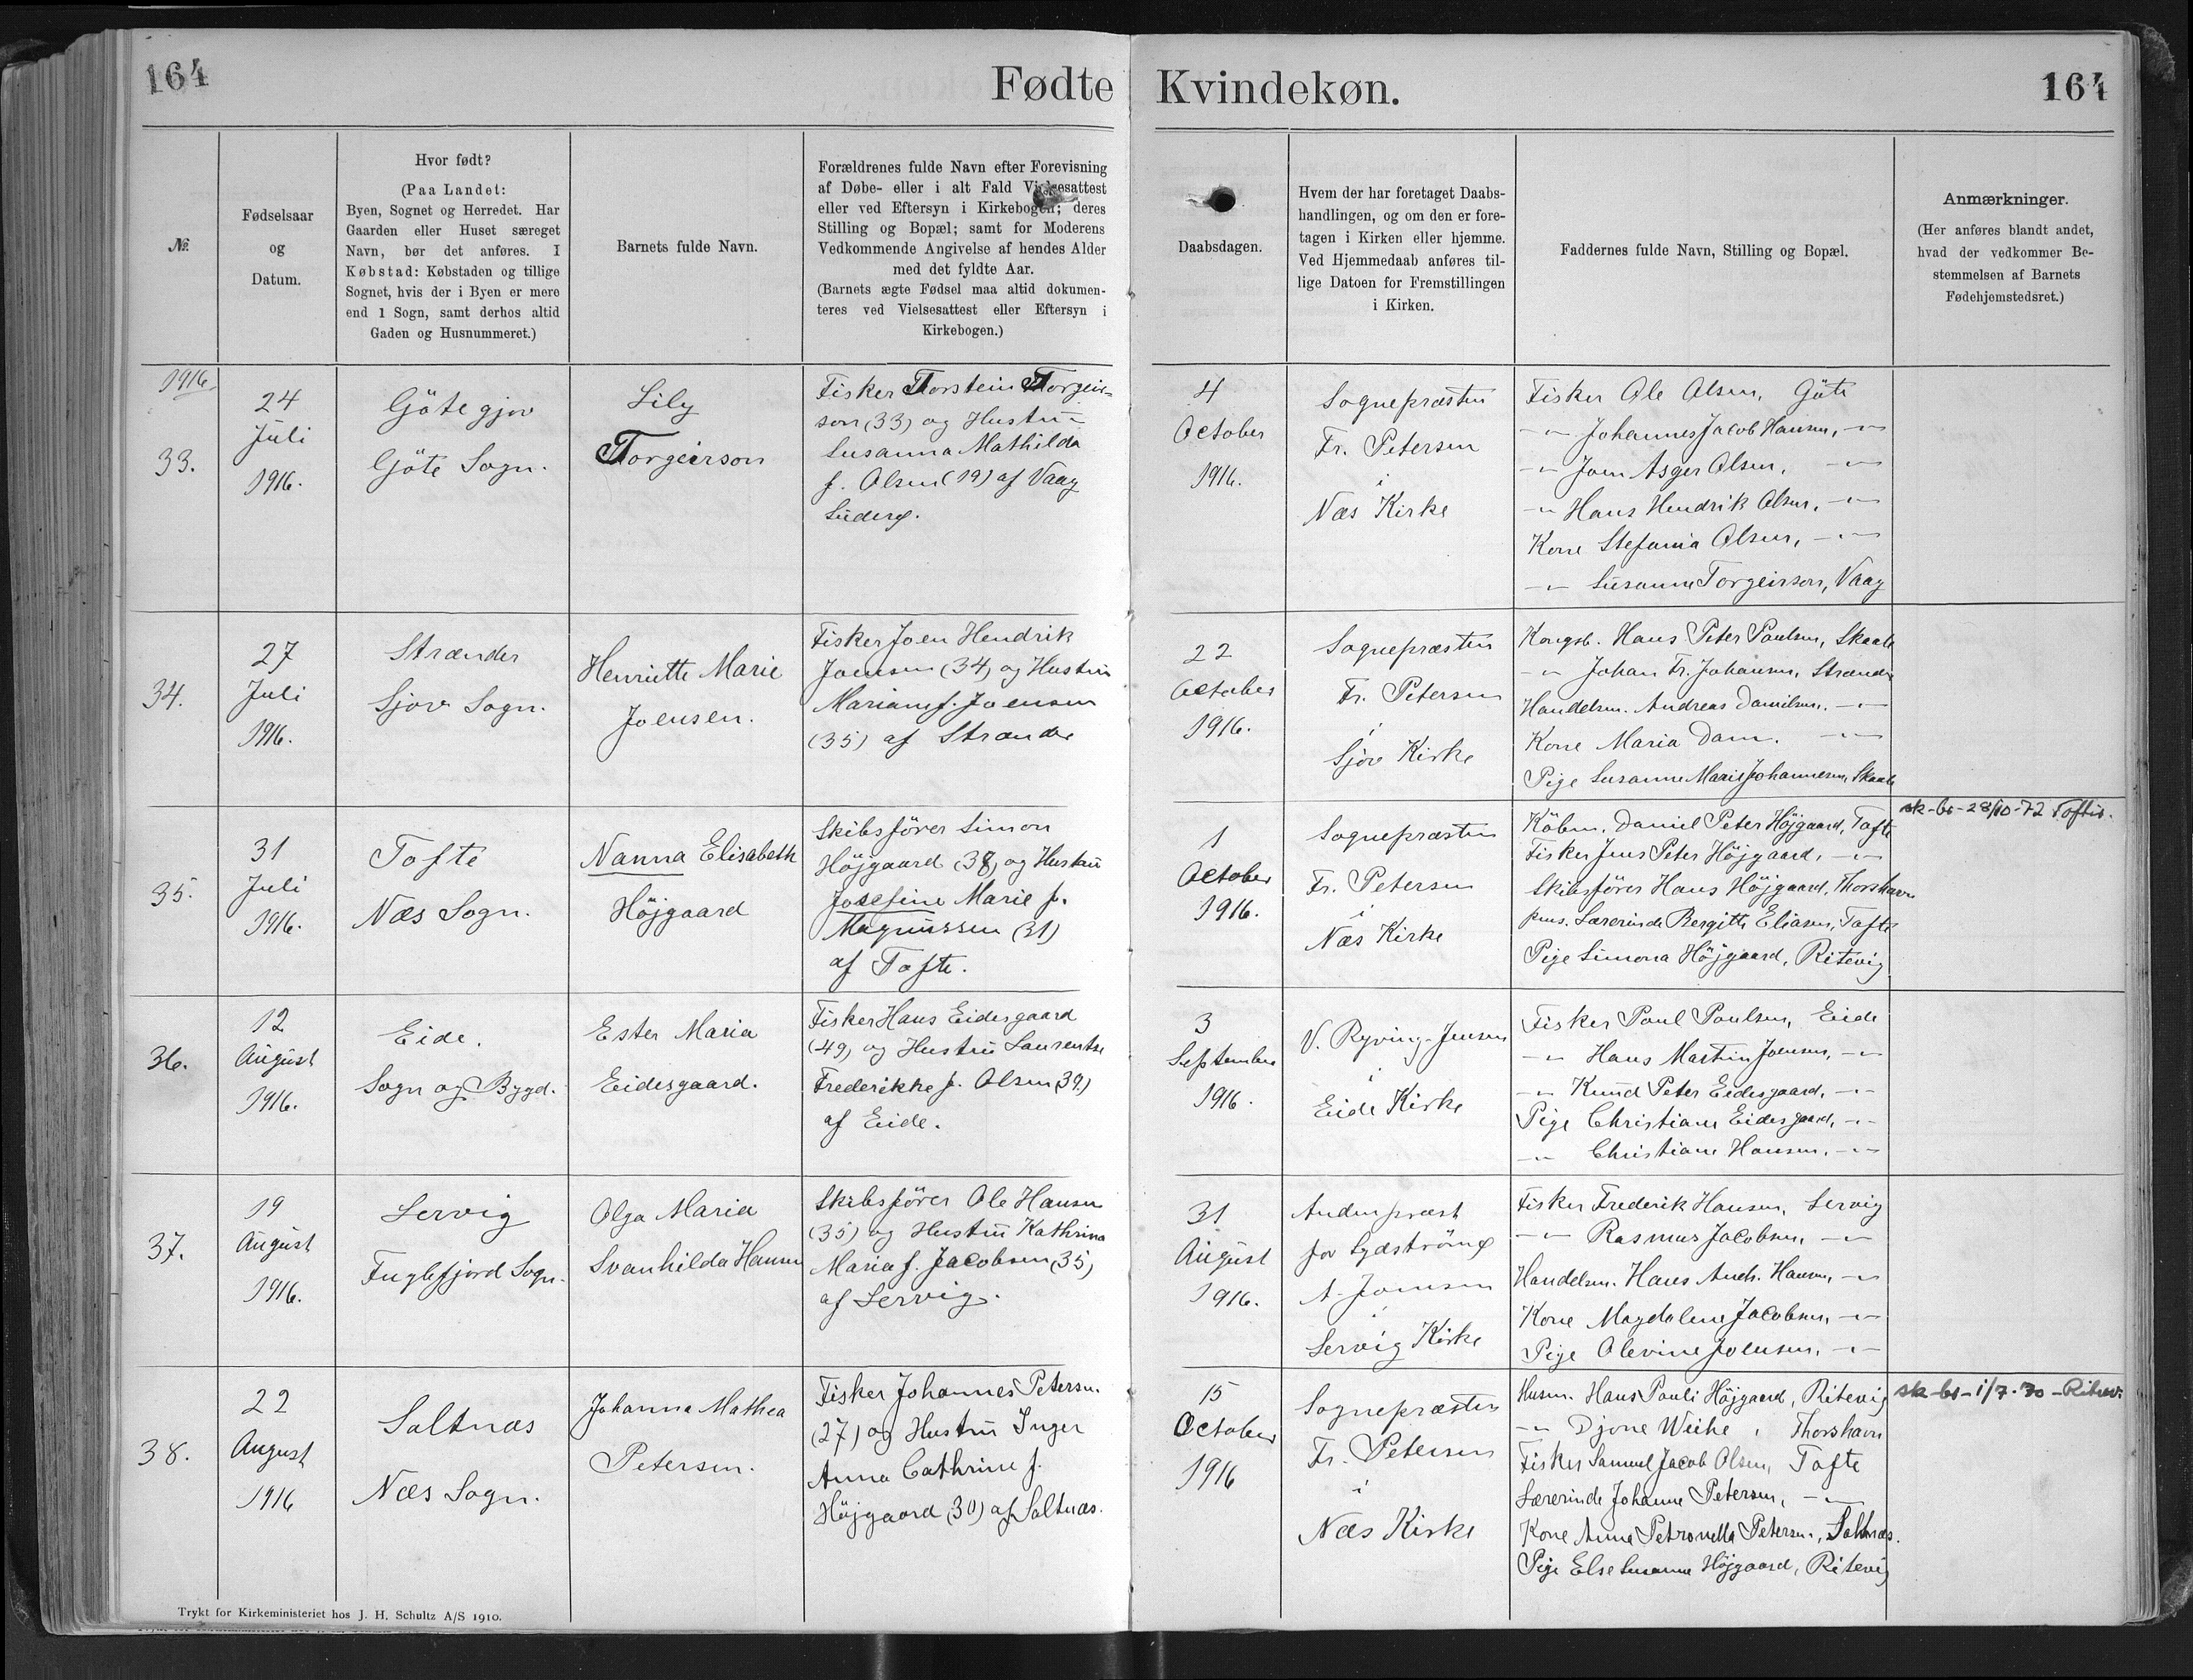 164
Fødte
Kvindekøn.
164
№
Fødselsaar
og
Datum.
Hvor født?
(Paa Landet:
Byen, Sognet og Herredet. Har
Gaarden eller Huset særeget
Navn, bør det anføres. I
Købstad: Købstaden og tillige
Sognet, hvis der i Byen er mere
end 1 Sogn, samt derhos altid
Gaden og Husnummeret.)
Barnets fulde Navn.
Forældrenes fulde Navn efter Forevisning
af Døbe- eller i alt Fald Vielsesattest
eller ved Eftersyn i Kirkebogen; deres
Stilling og Bopæl; samt for Moderens
Vedkommende Angivelse af hendes Alder
med det fyldte Aar.
(Barnets ægte Fødsel maa altid dokumen-
teres ved Vielsesattest eller Eftersyn i
Kirkebogen.)
Daabsdagen.
Hvem der har foretaget Daabs-
handlingen, og om den er fore-
tagen i Kirken eller hjemme.
Ved Hjemmedaab anføres til-
lige Datoen for Fremstillingen
i Kirken.
Faddernes fulde Navn, Stilling og Bopæl.
Anmærkninger.
(Her anføres blandt andet,
hvad der vedkommer Be-
stemmelsen af Barnets
Fødehjemstedsret.)
1916.
33.
24
Juli
1916.
Göte gjov
Göte Sogn.
Lily
Torgeirson
Fisker Torstein Torgeir-
son (33) og Hustru
Susanna Mathilda
f. Olsen (19) af Vaag
Suderø.
4
October
1916.
Sognepræsten
Fr. Petersen
i
Næs Kirke
Fisker Ole Olsen, Göte
-"- Johannes Jacob Hansen, -"-
-"- Joen Asger Olsen, -"-
-"- Hans Hendrik Olsen, -"-
Kone Stefania Olsen, -"-
-"- Susanne Torgeirson, Vaag
34.
27
Juli
1916.
Strænder
Sjov Sogn.
Henriette Marie
Joensen.
Fisker Joen Hendrik
Joensen (34) og Hustru
Mariann f. Joensen
(35) af Strænder
22
October
1916.
Sognepræsten
Fr. Petersen
i
Sjov Kirke
Kongsb. Hans Peter Poulsen, Skaale
-"- Johan Fr. Johansen, Strænder
Handelsm. Andreas Danielsen. -"-
Kone Maria Dam. -"-
Pige Susanne Marie Johannesen, Skaale
35.
31
Juli
1916.
Tofte
Næs Sogn.
Nanna Elisabeth
Höjgaard
Skibsförer Simon
Höjgaard (38) og Hustru
Josefine Marie f.
Magnussen (31)
af Tofte.
1
October
1916.
Sognepræsten
Fr. Petersen
i
Næs Kirke
Köbm. Daniel Peter Höjgaard, Tofte
Fisker Jens Peter Höjgaard, -"-
Skibsförer Hans Höjgaard, Thorshavn
pens. Lærerinde Bergitte Eliasen, Tofte
Pige Simona Höjgaard, Ritevig
sk-bs-28/10-72 Toftir.
36.
12
August
1916.
Eide.
Sogn og Bygd.
Ester Maria
Eidesgaard.
Fisker Hans Eidesgaard
(49) og Hustru Laurentse
Frederikke f. Olsen (39)
af Eide.
3
September
1916.
V. Ryving-Jensen
i
Eide Kirke
Fisker Poul Poulsen, Eide
-"- Hans Martin Joensen, -"-
-"- Knud Peter Eidesgaard, -"-
Pige Christiane Eidesgaard, -"-
-"- Christiane Hansen, -"-
37.
19
August
1916.
Lervig
Fuglefjord Sogn.
Olga Maria
Svanhilda Hansen
Skibsförer Ole Hansen
(35) og Hustru Kathrina
Maria f. Jacobsen (35)
af Lervig.
31
August
1916.
Andenpræst
for Sydströmø
A. Joensen
i
Lervig Kirke
Fisker Frederik Hansen, Lervig
-"- Rasmus Jacobsen, -"-
Handelsm. Hans Andr. Hansen, -"-
Kone Magdalene Jacobsen, -"-
Pige Olevine Joensen, -"-
38.
22
August
1916
Saltnæs
Næs Sogn.
Johanna Mathea
Petersen.
Fisker Johannes Petersen.
(27) og Hustru Inger
Anna Cathrine f.
Höjgaard (30) af Saltnæs.
15
October
1916
Sognepræsten
Fr. Petersen
i
Næs Kirke
Husm. Hans Pauli Höjgaard, Ritevig
-"- Djone Weihe, Thorshavn
Fisker Samuel Jacob Olsen, Tofte
Lærerinde Johanne Petersen, -"-
Kone Anna Petronella Petersen, Saltnæs.
Pige Else Susanne Höjgaard, Ritevig
sk-bs-1/7-30-Ritev.
Trykt for Kirkeministeriet hos J. H. Schultz A/S 1910.